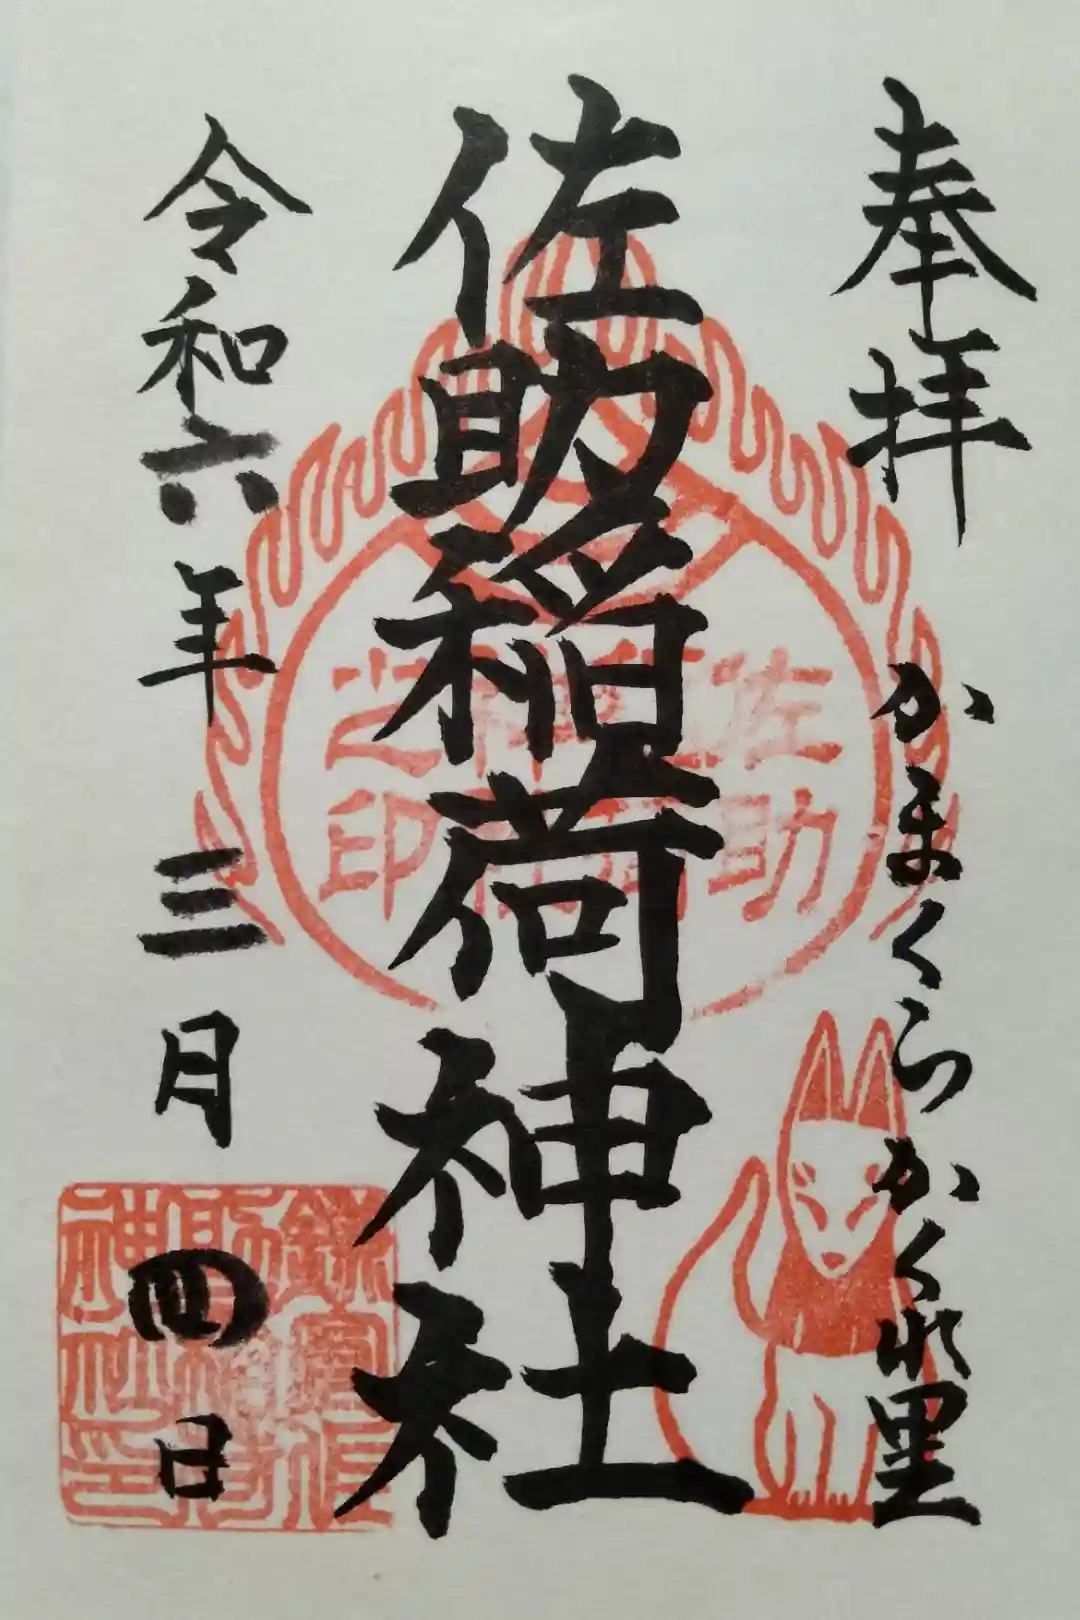 奉拝
かまくらかくれ里
佐助稲荷神社
佐助稲荷神社之印
令和六年三月四日
鎌倉佐助稲荷神社印